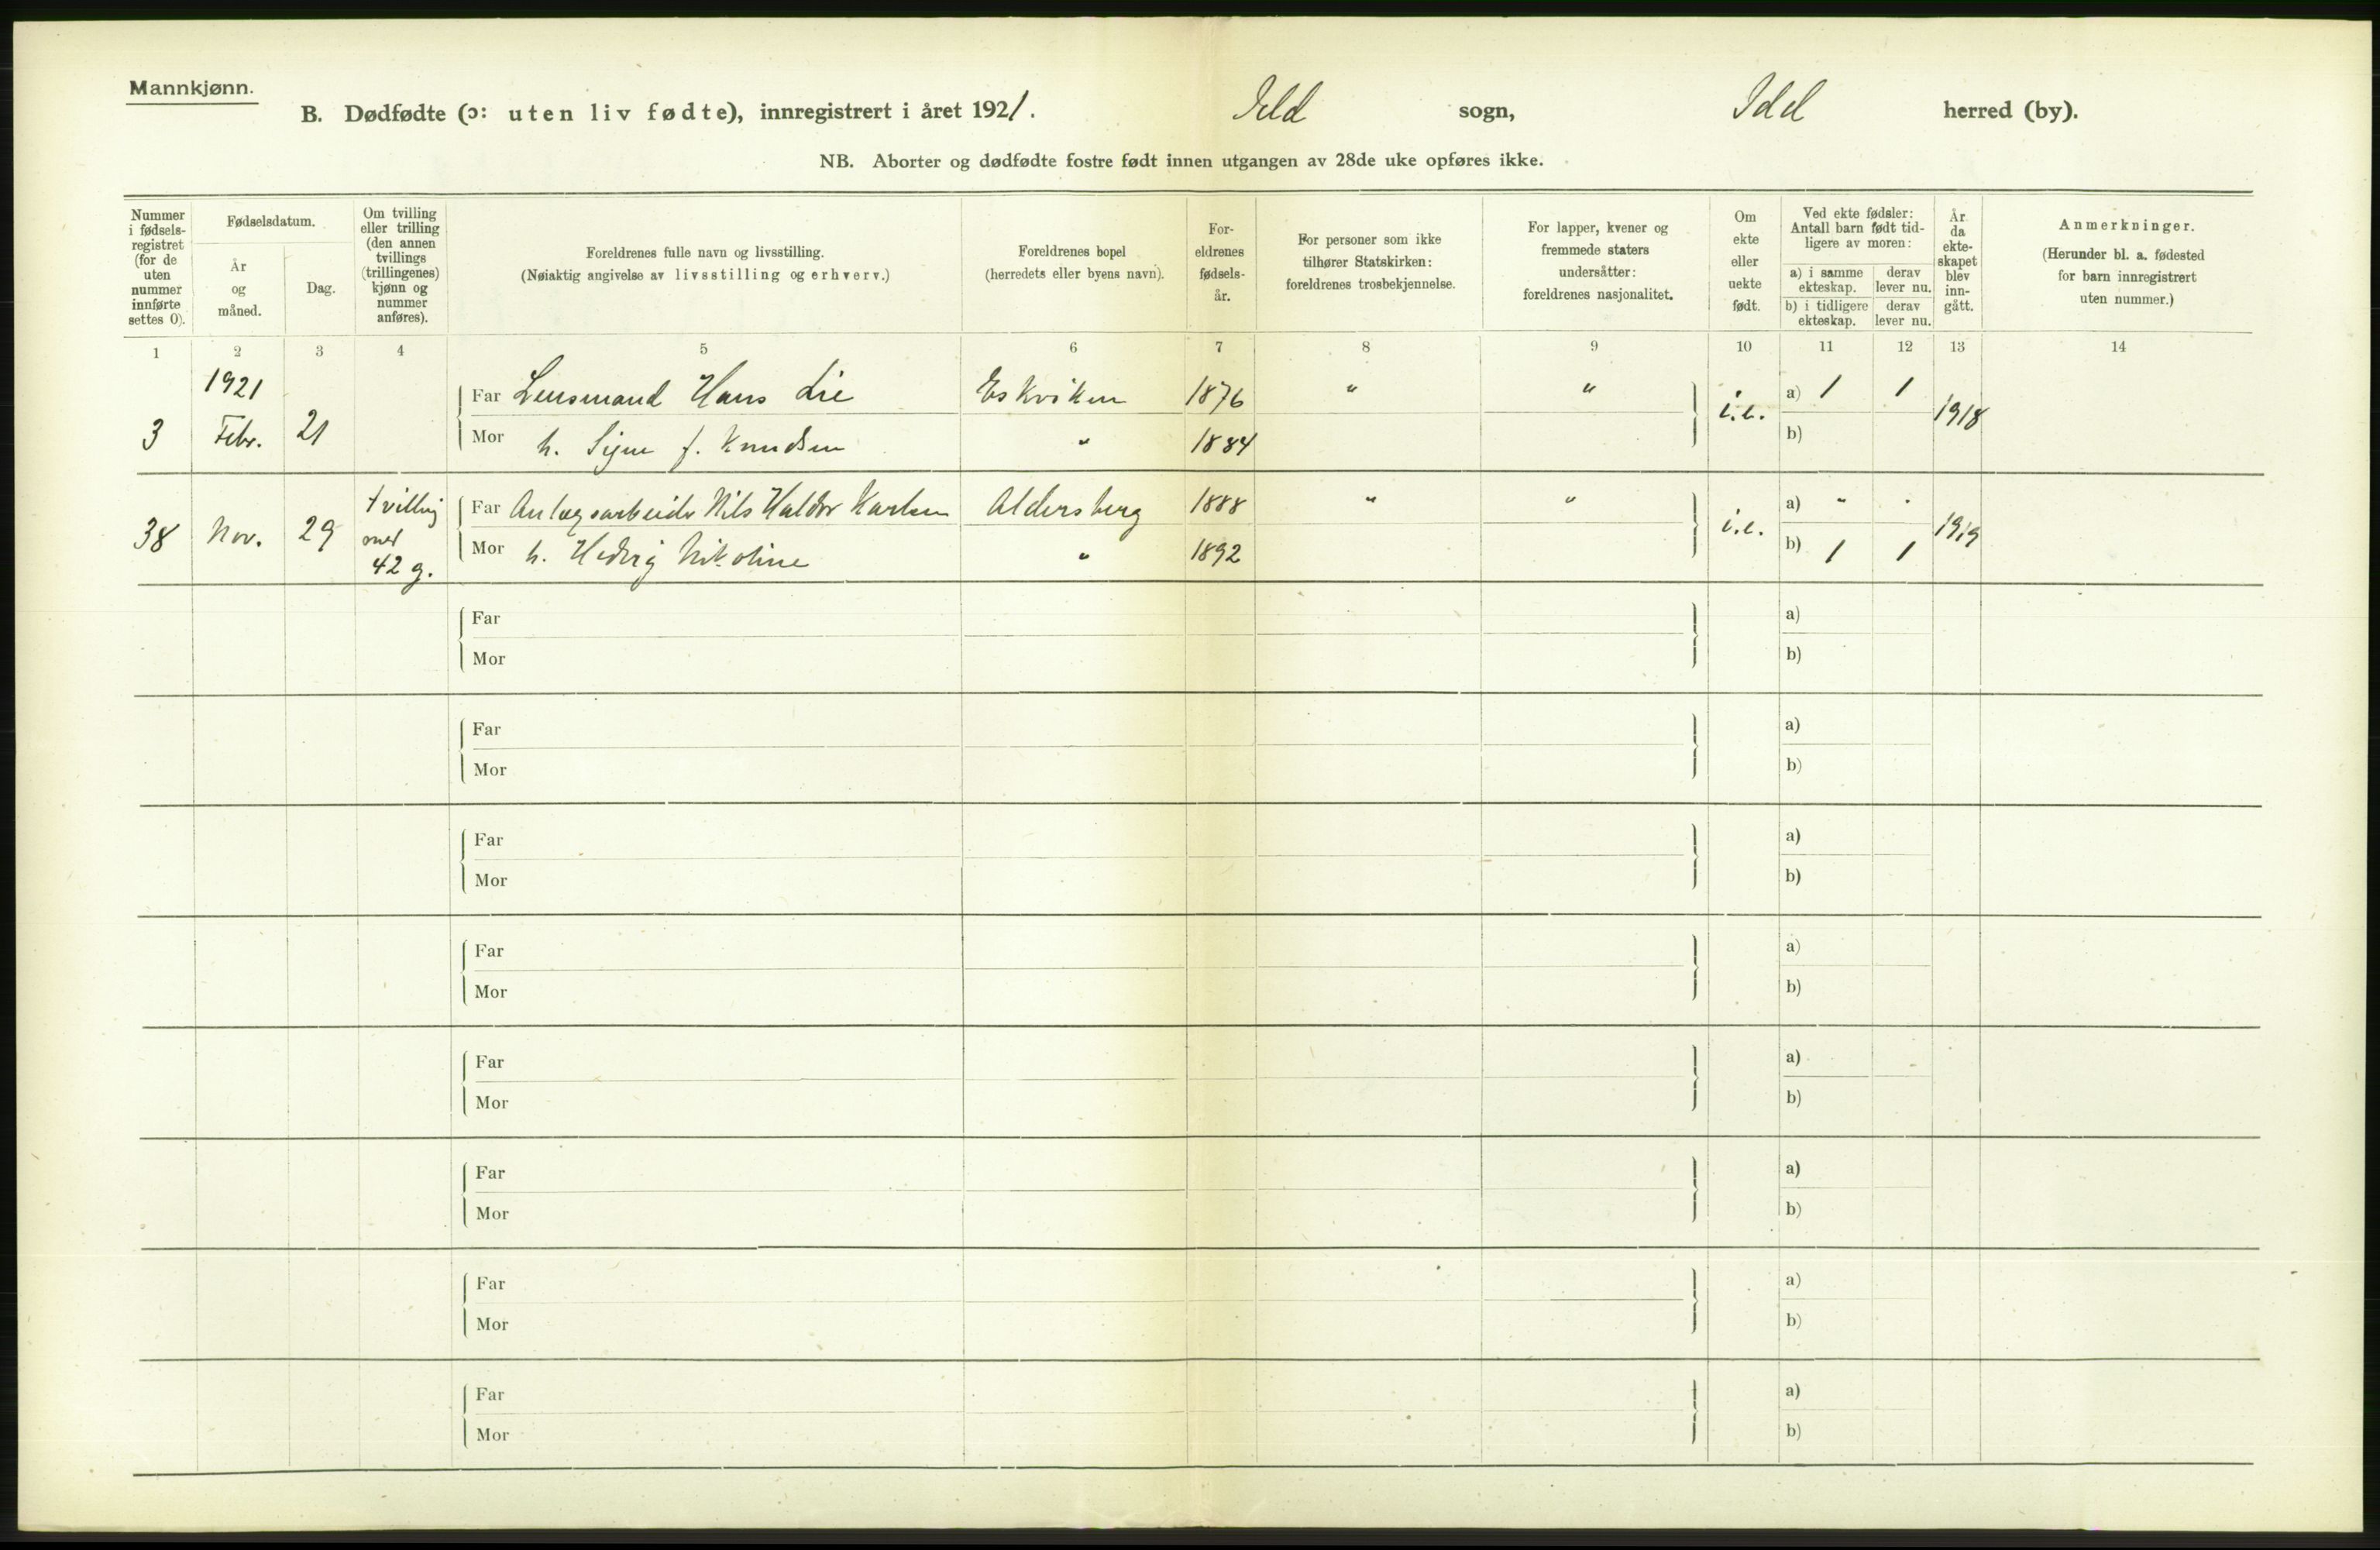 Mannkjønn.
B. Dødfødte (ɔ: uten liv fødte), innregistrert i året 1921. Idd sogn, Idd herred (by).
NB. Aborter og dødfødte fostre født innen utgangen av 28de uke opføres ikke.
Nummer i fødsels-registret (for de uten nummer innførte settes 0).
Fødselsdatum.
År og måned.
Dag.
Om tvilling eller trilling (den annen tvillings (trillingenes) kjønn og nummer anføres).
Foreldrenes fulle navn og livsstilling.
(Nøiaktig angivelse av livsstilling og erhverv.)
Foreldrenes bopel
(herredets eller byens navn).
For-eldrenes fødsels-år.
For personer som ikke tilhører Statskirken: foreldrenes trosbekjennelse.
For lapper, kvener og fremmede staters undersåtter: foreldrenes nasjonalitet.
Om ekte eller uekte født.
Ved ekte fødsler: Antall barn født tid-ligere av moren:
a) i samme ekteskap. derav lever nu.
b) i tidligere ekteskap. derav lever nu.
År da ekte-skapet blev inn-gått.
Anmerkninger.
(Herunder bl. a. fødested for barn innregistrert uten nummer.)
1 2 3 4 5 6 7 8 9 10 11 12 13 14
1921
Far Lensmand Hans Lie Eskviken 1876 " " a) 1 1
3 Febr. 21 i.e. 1918
Mor h. Signe f. Knudsen " 1884 b)
tvilling
Far Anlægsarbeider Nils Haldor Karlsen Aldersberg 1888 " " a) " "
38 Nov. 29 med i.e. 1919
Mor h. Hedvig Nikoline " 1892 b) 1 1
42 g.
Far a)
Mor b)
Far a)
Mor b)
Far a)
Mor b)
Far a)
Mor b)
Far a)
Mor b)
Far a)
Mor b)
Far a)
Mor b)
Far a)
Mor b)